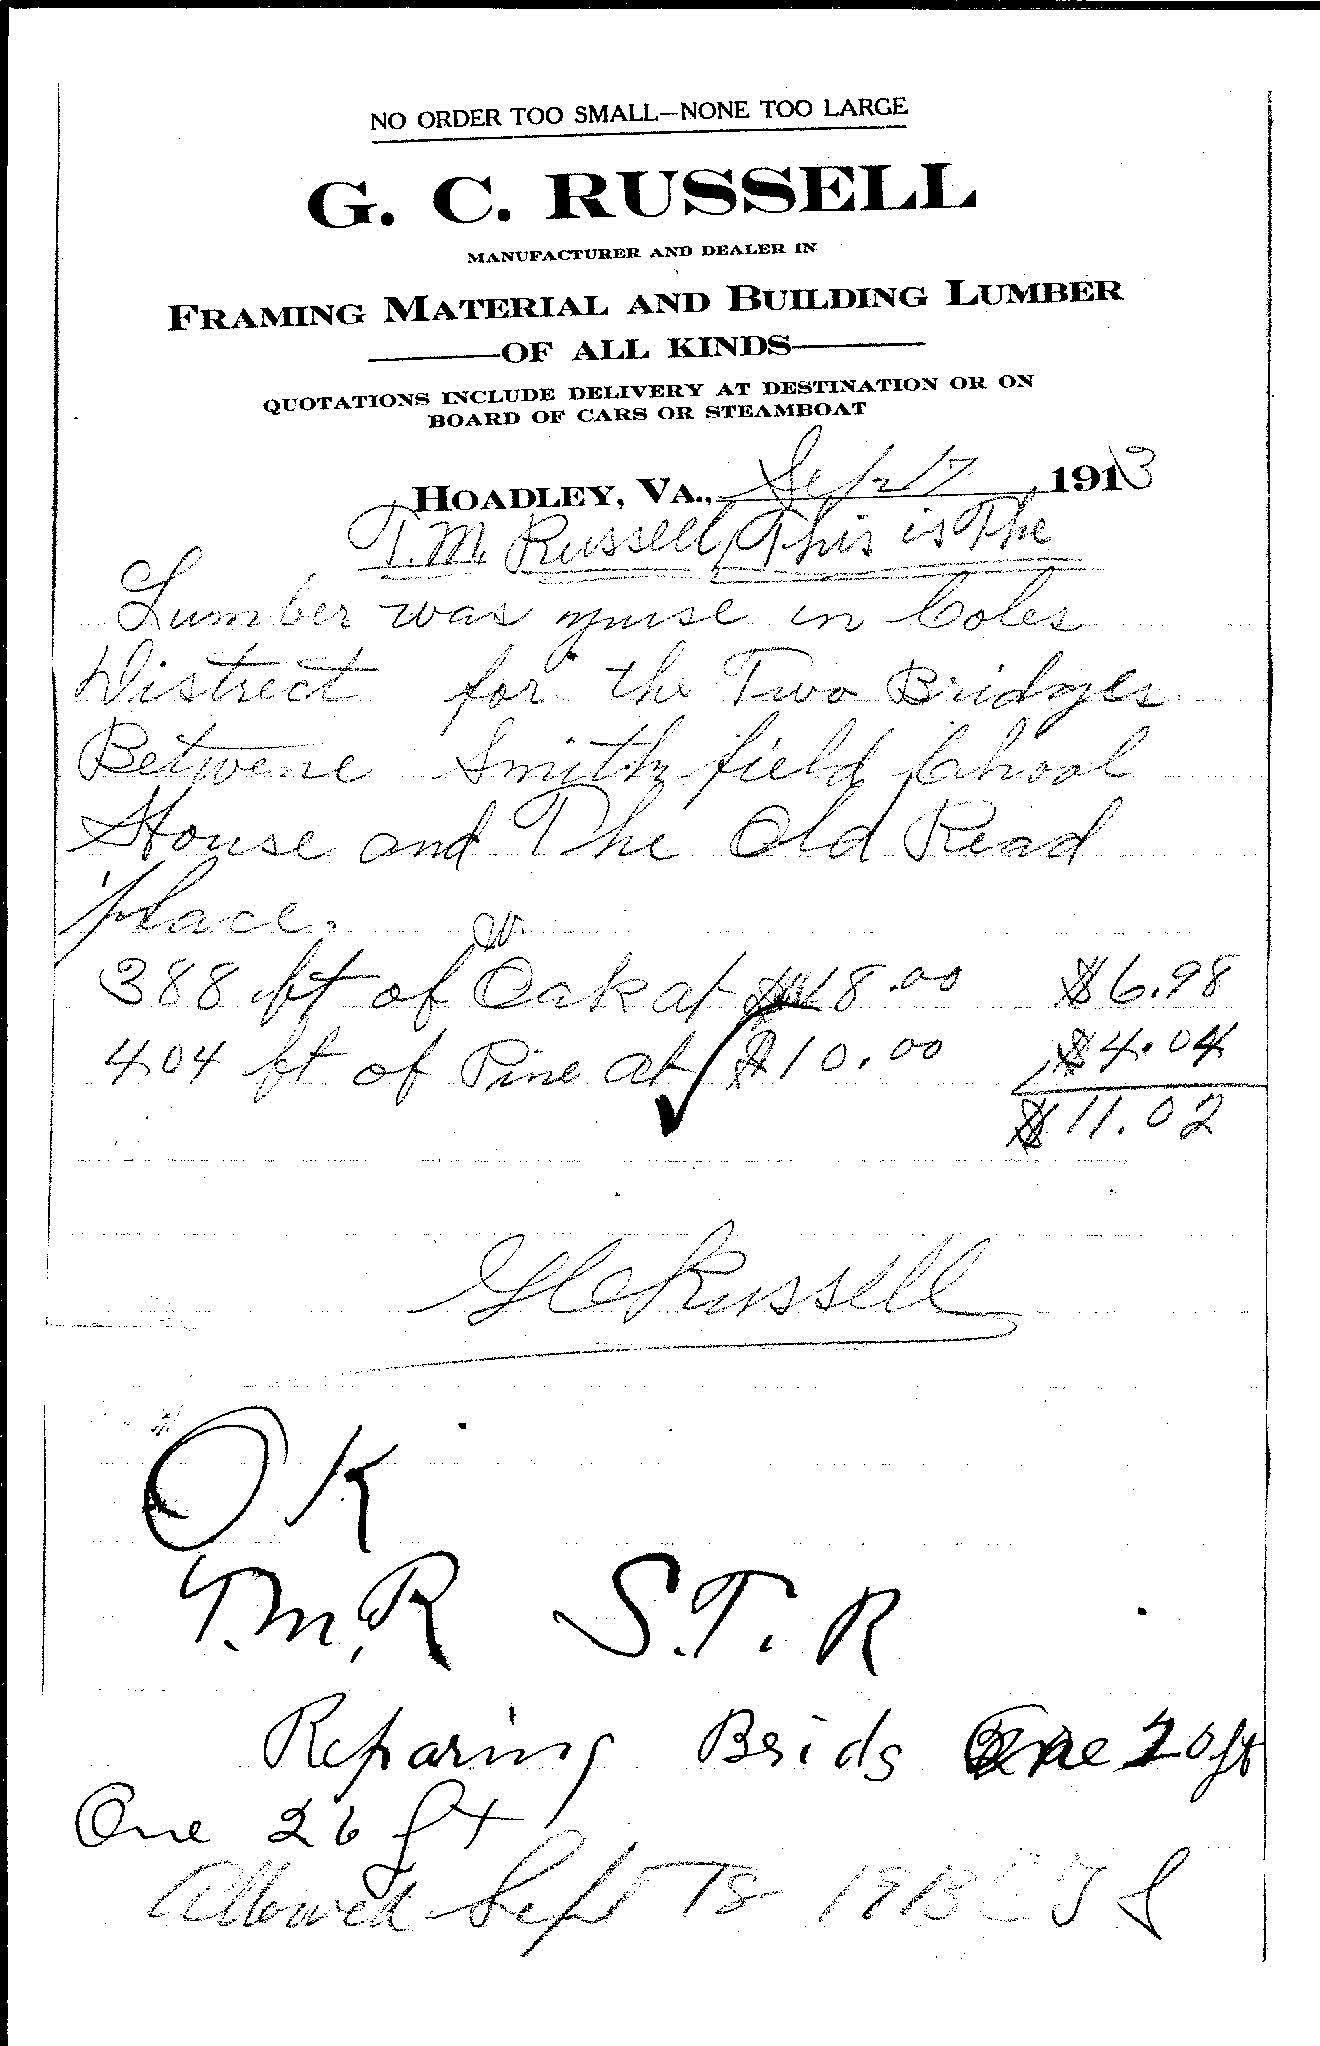 NO ORDER TOO SMALL—NONE TOO LARGE
G. C. RUSSELL
MANUFACTURER AND DEALER IN
FRAMING MATERIAL AND BUILDING LUMBER
OF ALL KINDS
QUOTATIONS INCLUDE DELIVERY AT DESTINATION OR ON
BOARD OF CARS OR STEAMBOAT
HOADLEY, VA., Sep 17 1913
T. M. Russell, This is The
Lumber was in Coles
District for the Two Bridges
Betwene Smithfield School
House and The Old Read
place.
388 ft of Oak at 18.00 $6.98
404 ft of Pine at $10.00 $4.04
$11.02
G C Russell
OK
T.M.R S.T.R
Reparing Brids One 20 ft
One 26 ft
Allowed Sept 18 1913